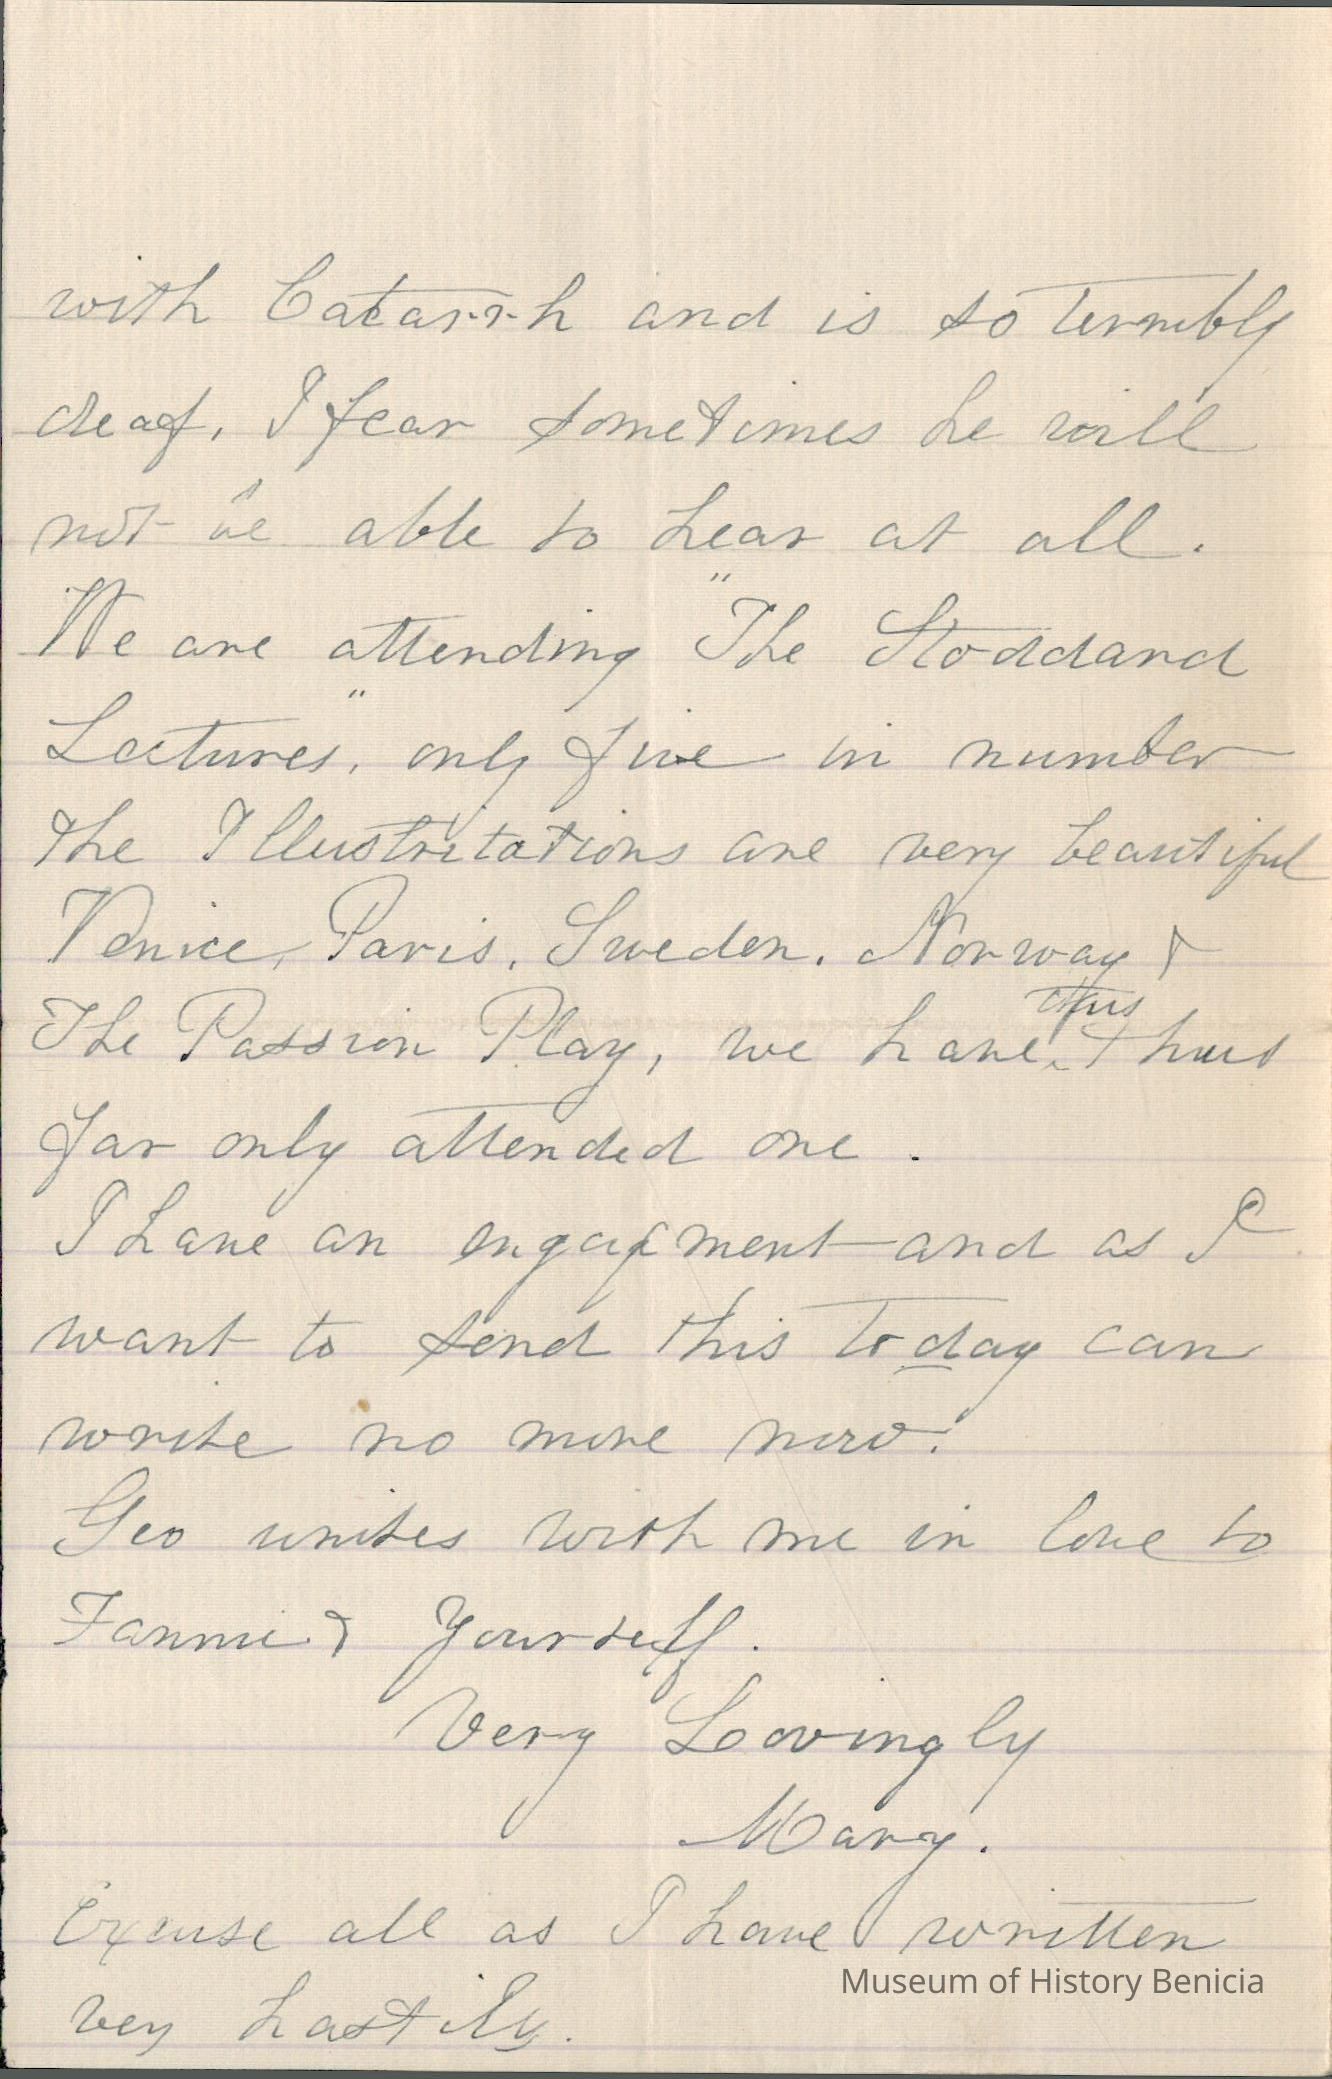 with Catarrh and is so terribly
deaf, I fear sometimes he will
not be able to hear at all.
We are attending "The Stoddard
Lectures", only five in number
the Illustrtations are very beautiful
Venice, Paris, Sweden, Norway &
thus
The Passion Play, we have thus
far only attended one.
I have an engagment and as I
want to send this today can
write no more now.
Geo unites with me in love to
Fannie & Yourself.
Very Lovingly
Mary.
Excuse all as I have written
very hastily.
Museum of History Benicia